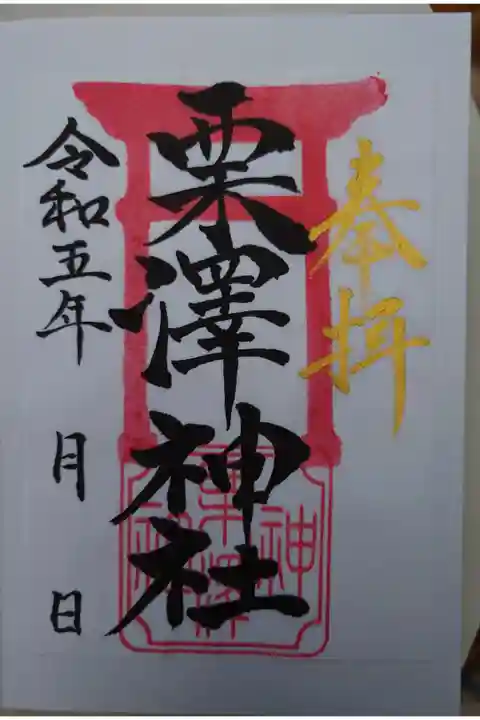 奉拝
栗澤神社
令和五年 月 日
栗澤神社